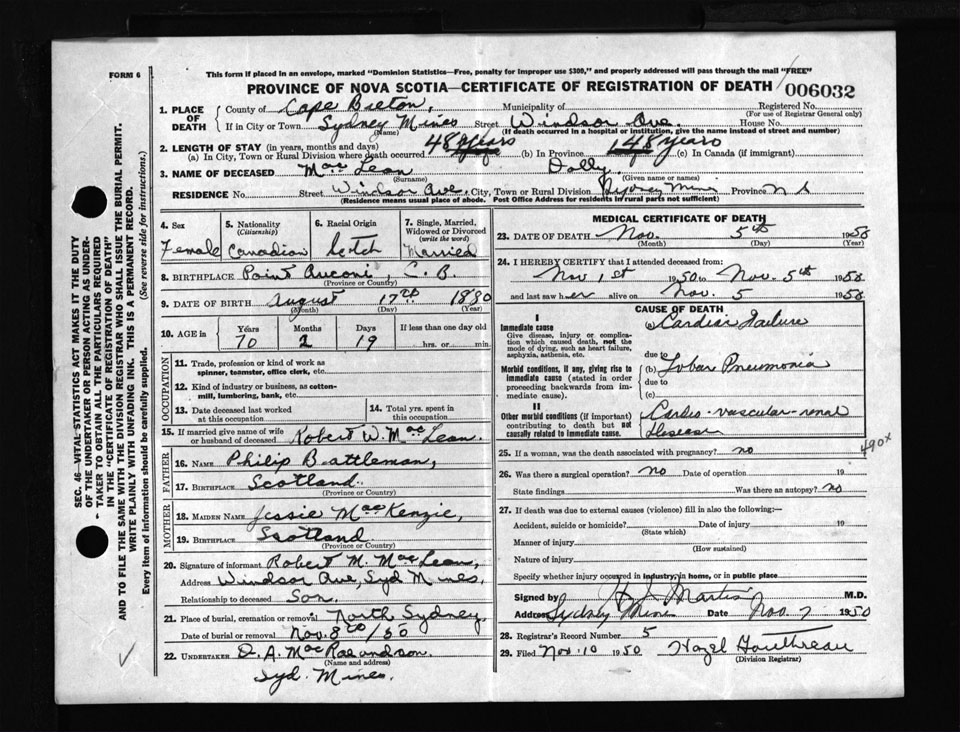 FORM 6
This form if placed in an envelope, marked "Dominion Statistics—Free, penalty for improper use $300," and properly addressed will pass through the mail "FREE"
PROVINCE OF NOVA SCOTIA—CERTIFICATE OF REGISTRATION OF DEATH 006032
1. PLACE OF DEATH County of Cape Breton, Municipality of Registered No.
(For use of Registrar General only)
If in City or Town Sydney Mines Street Windsor Ave. House No.
(Name) (If death occurred in a hospital or institution, give the name instead of street and number)
2. LENGTH OF STAY (in years, months and days)
(a) In City, Town or Rural Division where death occurred 48 years (b) In Province 48 years (c) In Canada (if immigrant)
3. NAME OF DECEASED MacLean Dolly
(Surname) (Given name or names)
RESIDENCE No. Street Windsor Ave, City, Town or Rural Division Sydney Mines Province N S
(Residence means usual place of abode. Post Office Address for residents in rural parts not sufficient)
4. Sex Female
5. Nationality (Citizenship) Canadian
6. Racial Origin Scotch
7. Single, Married, Widowed or Divorced (write the word) Married
8. BIRTHPLACE Point Aconi, C. B.
(Province or Country)
9. DATE OF BIRTH August 17th 1880
(Month) (Day) (Year)
10. AGE in Years 70 Months 2 Days 19 If less than one day old hrs. or min.
OCCUPATION
11. Trade, profession or kind of work as spinner, teamster, office clerk, etc.
12. Kind of industry or business, as cotton-mill, lumbering, bank, etc.
13. Date deceased last worked at this occupation
14. Total yrs. spent in this occupation
15. If married give name of wife or husband of deceased Robert W. MacLean.
FATHER
16. NAME Philip Battleman,
17. BIRTHPLACE Scotland.
(Province or Country)
MOTHER
18. MAIDEN NAME Jessie MacKenzie,
19. BIRTHPLACE Scotland.
(Province or Country)
20. Signature of informant Robert M. MacLean,
Address Windsor Ave, Syd Mines,
Relationship to deceased Son.
21. Place of burial, cremation or removal North Sydney,
Date of burial or removal Nov. 8 /50
22. UNDERTAKER D. A. MacRae and son.
(Name and address)
Syd. Mines.
MEDICAL CERTIFICATE OF DEATH
23. DATE OF DEATH Nov. 5th 1950
(Month) (Day) (Year)
24. I HEREBY CERTIFY that I attended deceased from:
Nov 1st 1950 to Nov. 5th 1950
and last saw her alive on Nov. 5 1950
CAUSE OF DEATH
I
Immediate cause
Give disease, injury or complication which caused death, not the mode of dying, such as heart failure, asphyxia, asthenia, etc.
(a) Cardiac Failure
due to
Morbid conditions, if any, giving rise to immediate cause (stated in order proceeding backwards from immediate cause).
(b) Lobar Pneumonia
due to
(c)
II
Other morbid conditions (if important) contributing to death but not causally related to immediate cause.
Cardio-vascular-renal disease
490x
25. If a woman, was the death associated with pregnancy? no
26. Was there a surgical operation? no Date of operation 19
State findings Was there an autopsy? no
27. If death was due to external causes (violence) fill in also the following:—
Accident, suicide or homicide? Date of injury 19
(State which)
Manner of injury
(How sustained)
Nature of injury
Specify whether injury occurred in industry, in home, or in public place
Signed by Martin M.D.
Address Sydney Mines Date Nov. 7 1950
28. Registrar's Record Number 5
29. Filed Nov. 10 1950 Hazel
(Division Registrar)
SEC. 46—VITAL STATISTICS ACT MAKES IT THE DUTY
OF THE UNDERTAKER OR PERSON ACTING AS UNDER-
TAKER TO OBTAIN ALL THE PARTICULARS REQUIRED
IN THE "CERTIFICATE OF REGISTRATION OF DEATH"
AND TO FILE THE SAME WITH THE DIVISION REGISTRAR WHO SHALL ISSUE THE BURIAL PERMIT.
WRITE PLAINLY WITH UNFADING INK. THIS IS A PERMANENT RECORD.
Every item of information should be carefully supplied. (See reverse side for instructions.)